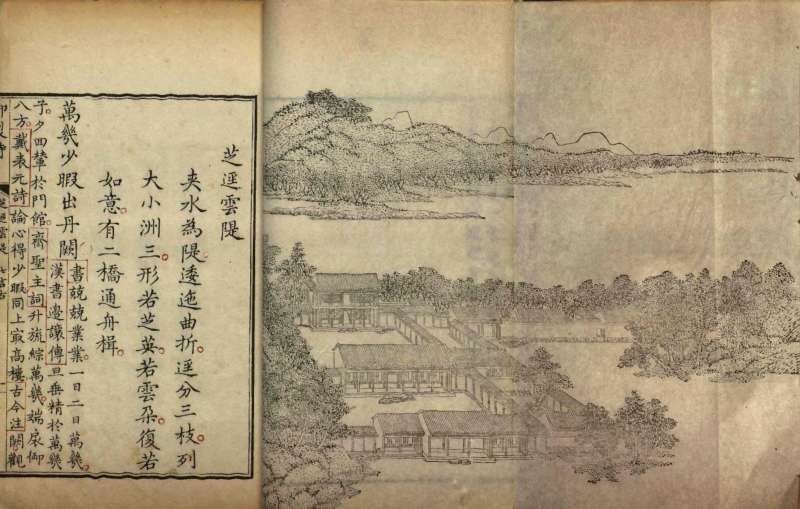 芝逕雲隄
夾水為隄逶迤曲折逕分三枝列
大小洲三形若芝英若雲朶復若
如意有二橋通舟楫
萬幾少暇出丹闕
書兢兢業業一日二日萬幾
漢書邊讓傳旦垂精於萬幾
子夕回輦於門館齊聖主詞升旒綜萬幾端扆御
八方戴表元詩論心得少暇同上最高樓古今注闕觀
芝逕雲隄 七言古